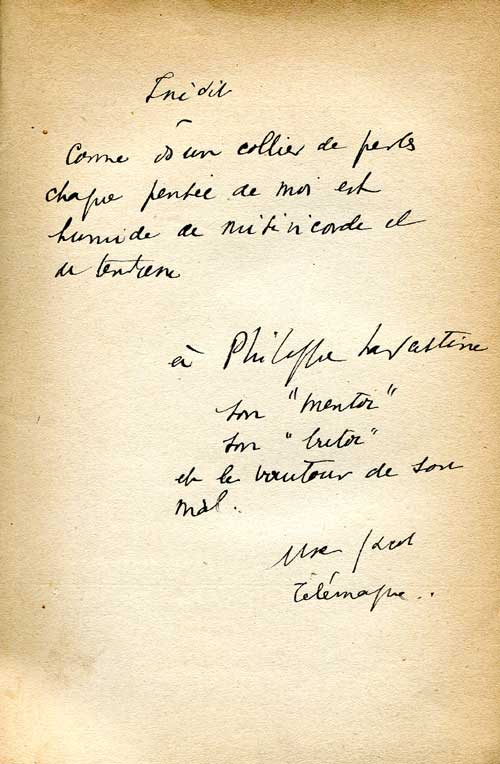 Inédit
Comme ds un collier de perles
chaque pensée de moi est
humide de miséricorde et
de tendresse
à Philippe Lavastine
son "mentor"
son "tutor"
et le vautour de son
mal.
Télémaque..